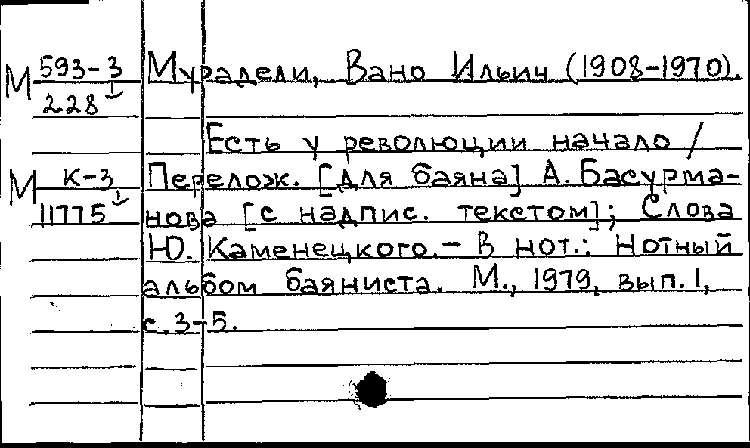 М 593-3 Мурадели, Вано Ильич (1908-1970).
228
Есть у революции начало /
М К-3 Перелож. [для баяна] А. Басурма-
11775 нова [с надпис. текстом]; Слова
Ю. Каменецкого. - В нот.: Нотный
альбом баяниста. М., 1979, вып. 1,
с. 3-5.